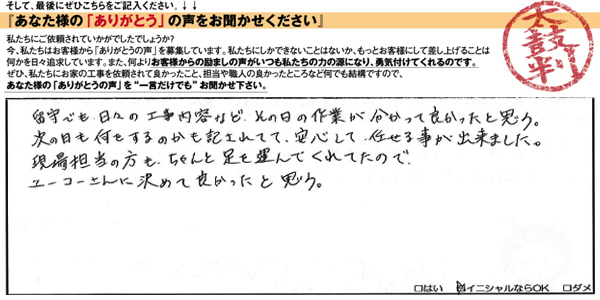 そして、最後にぜひこちらをご記入ください。↓↓
『あなた様の「ありがとう」の声をお聞かせください』
私たちにご依頼されていかがでしたでしょうか?
今、私たちはお客様から「ありがとうの声」を募集しています。私たちにしかできないことはないか、もっとお客様にして差し上げることは
何かを日々追求しています。また、何よりお客様からの励ましの声がいつも私たちの力の源になり、勇気付けてくれるのです。
ぜひ、私たちにお家の工事を依頼されて良かったこと、担当や職人の良かったところなど何でも結構ですので、
あなた様の「ありがとうの声」を“一言だけでも”お聞かせ下さい。
太鼓判
留守でも、日々の工事内容など、その日の作業が分かって良かったと思う。
次の日も何をするのかも記されてて、安心して任せる事が出来ました。
現場担当の方も、ちゃんと足を運んでくれてたので、
ユーコーさんに決めて良かったと思う。
□はい ☑イニシャルならOK □ダメ